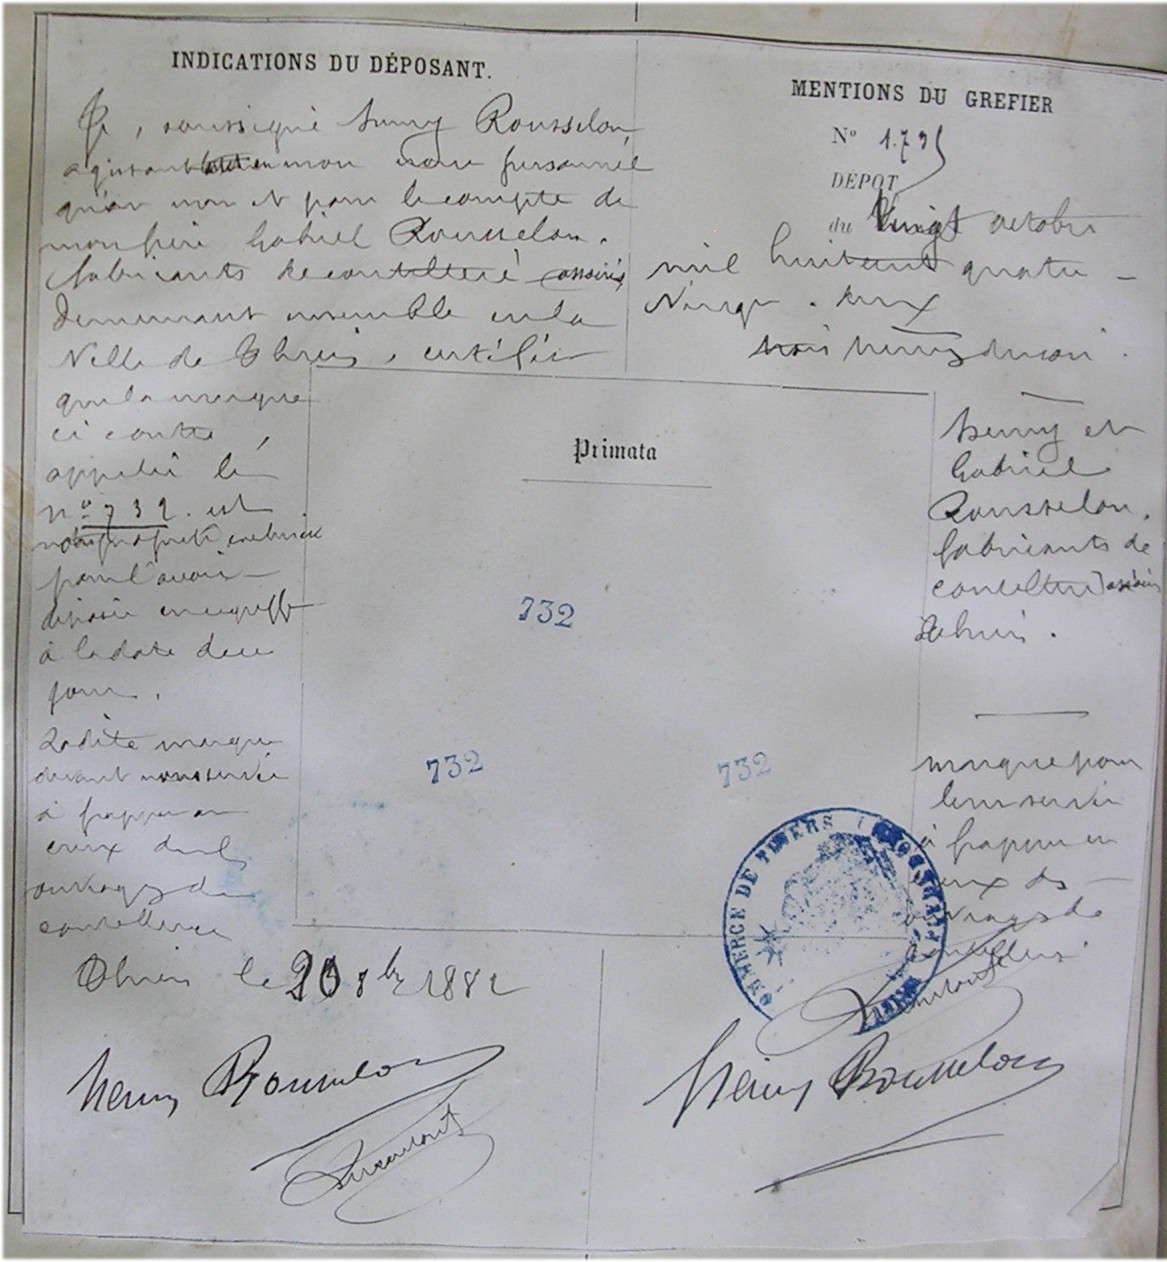 INDICATIONS DU DÉPOSANT.
Je, soussigné henry Rousselon
agissant tant en mon nom personnel
qu'au nom et pour le compte de
mon frère Gabriel Rousselon.
fabricants de coutellerie associés
demeurant ensemble en la
Ville de Thiers, certifie
que la marque
ci contre
appelée le
no 732. est
notre propriété
pour l'avoir
déposée au greffe
à la date de ce
jour.
Ladite marque
devant nous servir
à frapper en
creux des
ouvrages de
coutellerie
Thiers le 20 8bre 1882
Henry Rousselon
MENTIONS DU GREFIER
No 1.795
DÉPOT
du Vingt octobre
mil huit cent quatre
Vingt. deux
henry et
Gabriel
Rousselon.
fabricants de
coutellerie associés
à Thiers.
marque pour
leur servir
à frapper en
creux des
ouvrages de
coutellerie
Henry Rousselon
Primata
732
732
732
COMMERCE DE THIERS